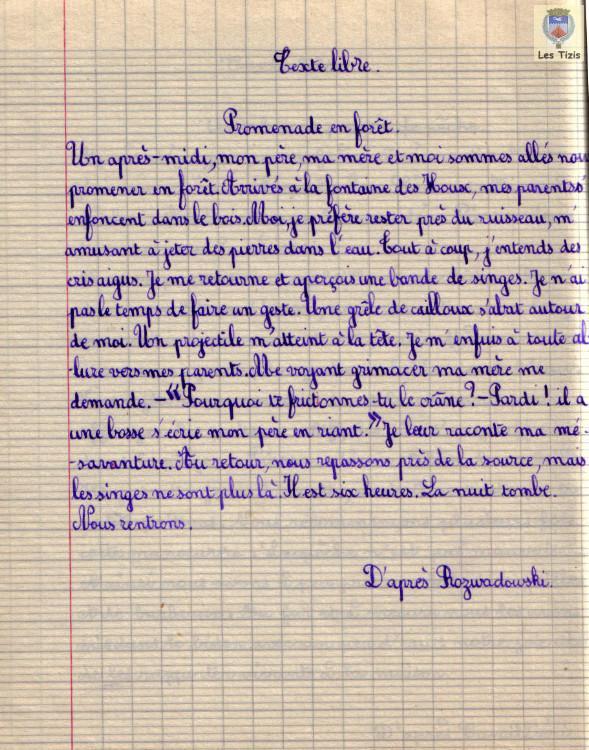 Les Tizis
Texte libre.
Promenade en forêt.
Un après-midi, mon père, ma mère et moi sommes allés nous
promener en forêt. Arrivés à la fontaine des Houx, mes parents s'
enfoncent dans le bois. Moi, je préfère rester près du ruisseau, m'
amusant à jeter des pierres dans l'eau. Tout à coup, j'entends des
cris aigus. Je me retourne et aperçois une bande de singes. Je n'ai
pas le temps de faire un geste. Une grêle de cailloux s'abat autour
de moi. Un projectile m'atteint à la tête. Je m'enfuis à toute al
-lure vers mes parents. Me voyant grimacer ma mère me
demande. - "Pourquoi te frictionnes-tu le crâne ? - Pardi ! il a
une bosse s'écrie mon père en riant." Je leur raconte ma mé-
-savanture. Au retour, nous repassons près de la source, mais
les singes ne sont plus là. Il est six heures. La nuit tombe.
Nous rentrons.
D'après Rozwadowski.